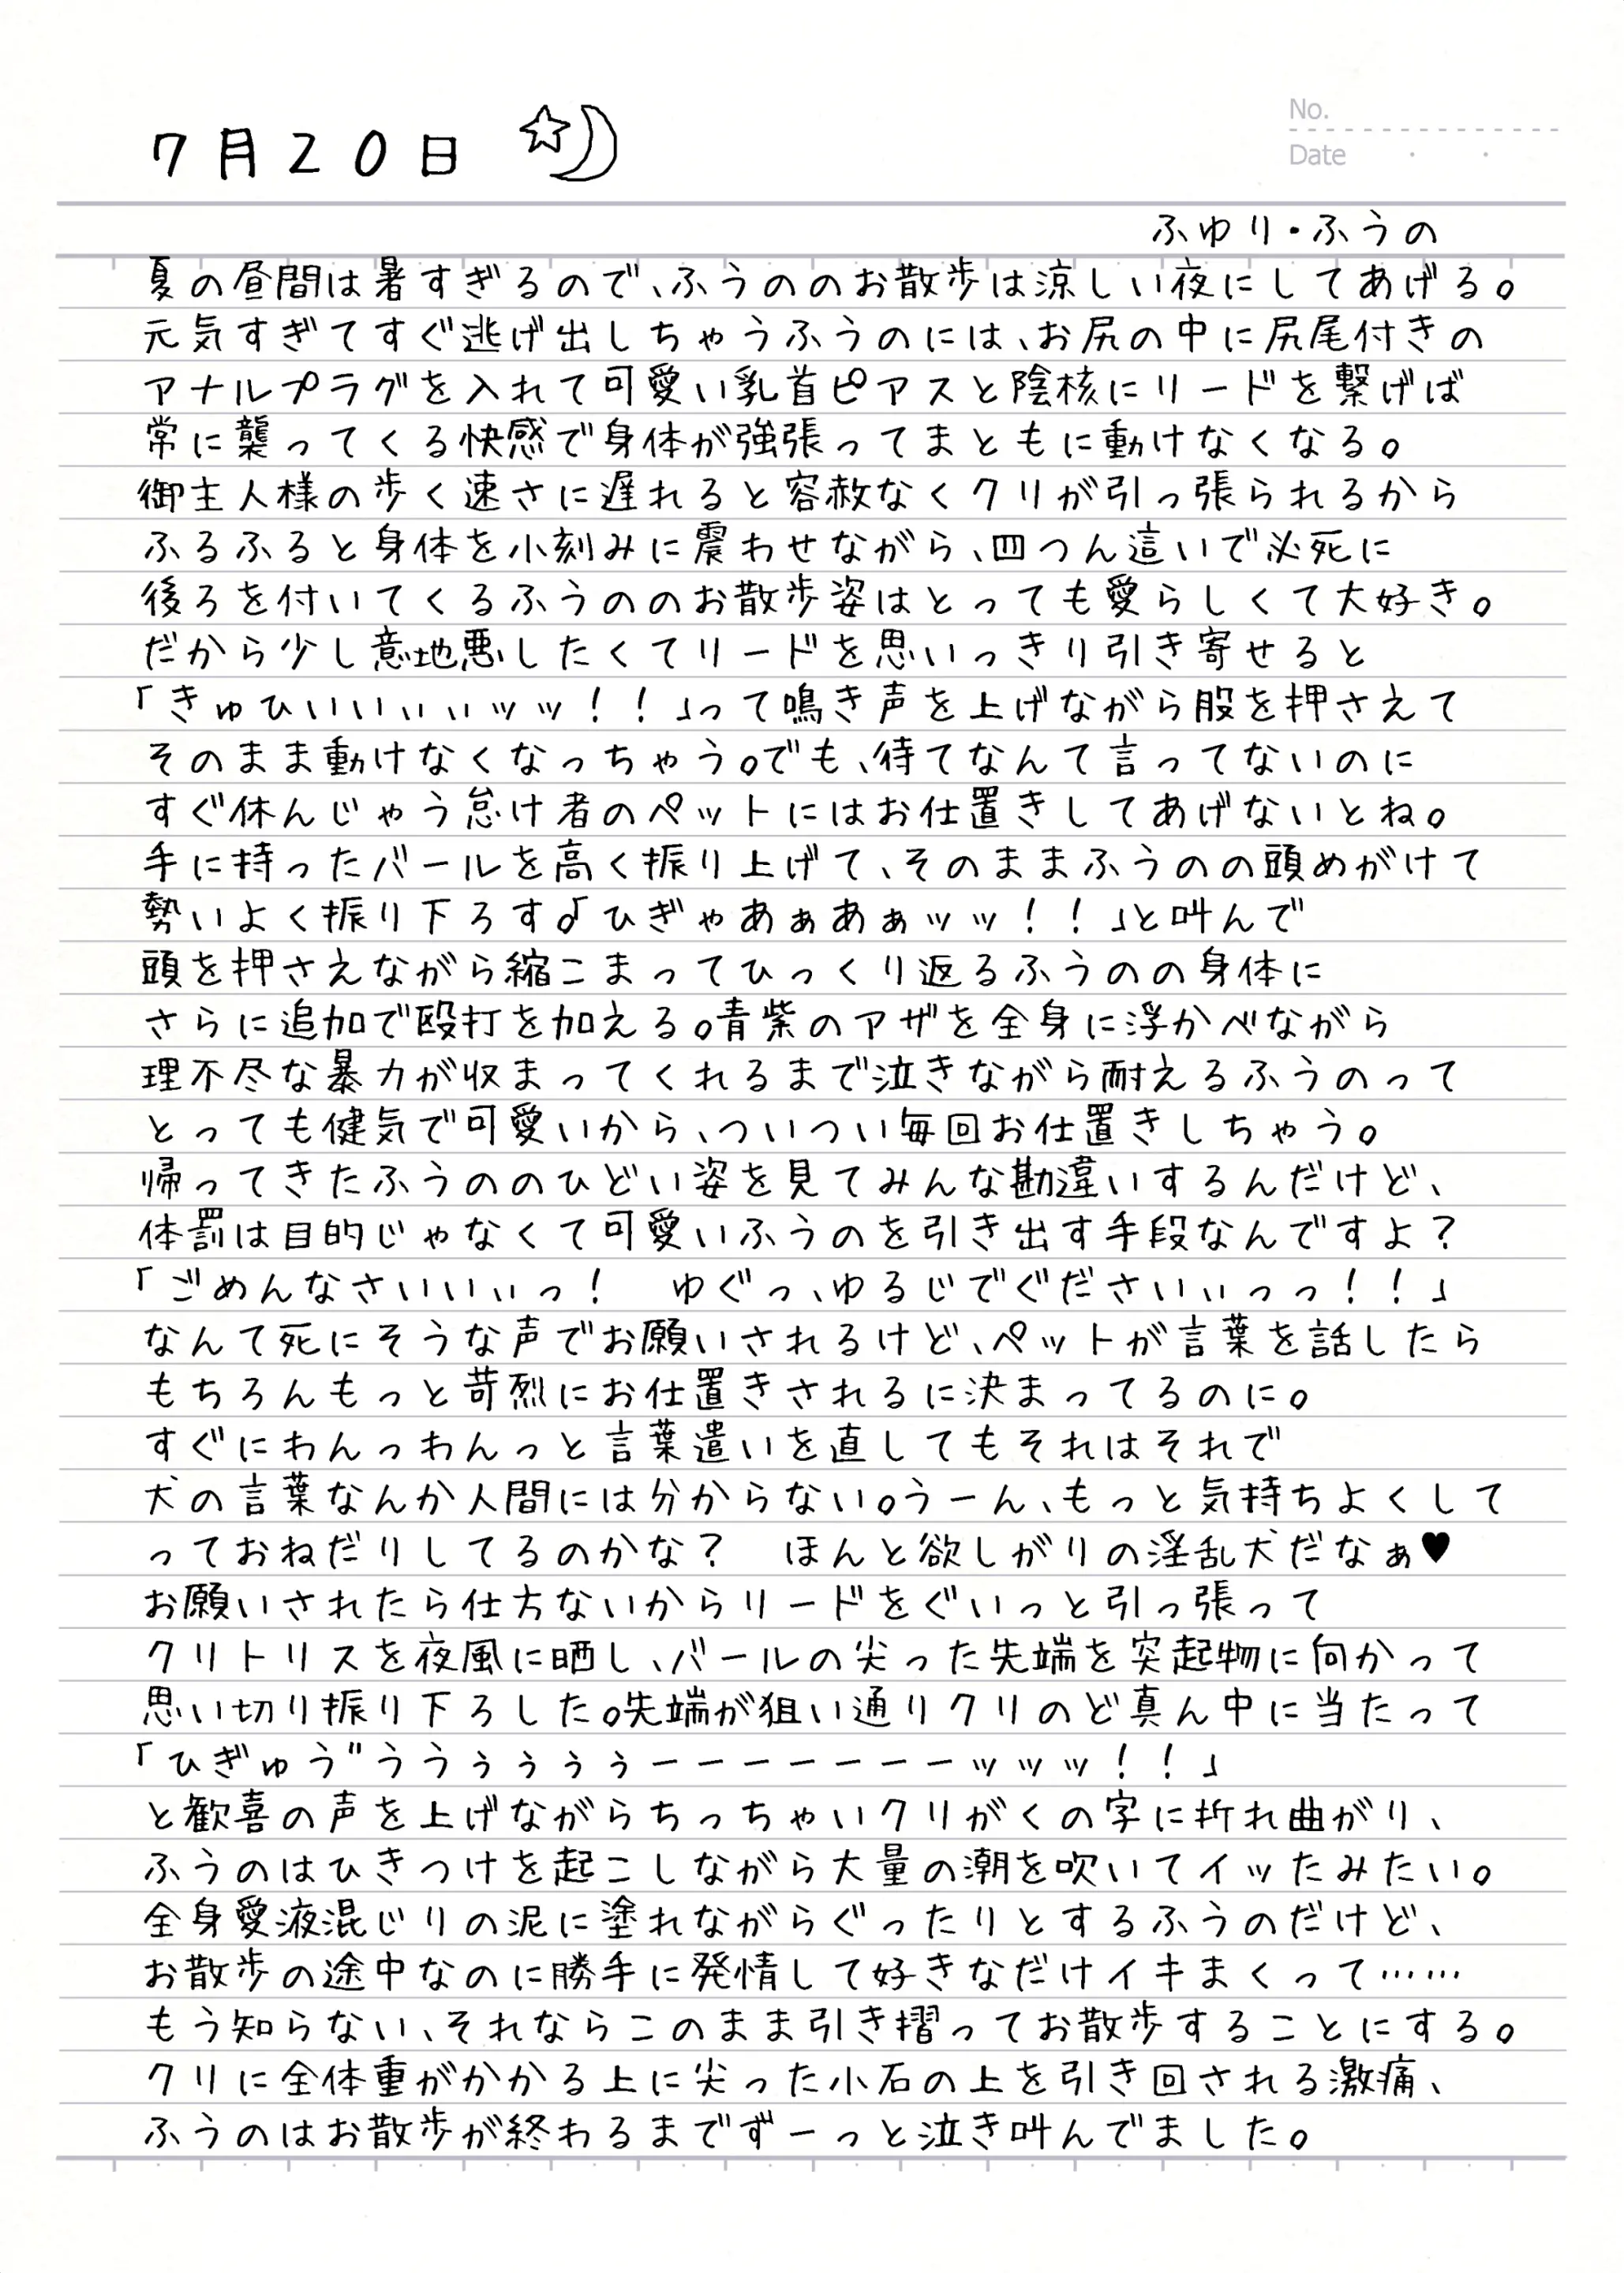 7月20日
No.
Date
ふゆり・ふうの
夏の昼間は暑すぎるので、ふうののお散歩は涼しい夜にしてあげる。
元気すぎてすぐ逃げ出しちゃうふうのには、お尻の中に尻尾付きの
アナルプラグを入れて可愛い乳首ピアスと陰核にリードを繋げば
常に襲ってくる快感で身体が強張ってまともに動けなくなる。
御主人様の歩く速さに遅れると容赦なくクリが引っ張られるから
ふるふると身体を小刻みに震わせながら、四つん這いで必死に
後ろを付いてくるふうののお散歩姿はとっても愛らしくて大好き。
だから少し意地悪したくてリードを思いっきり引き寄せると
「きゅひいいいぃぃッッ！！」って鳴き声を上げながら股を押さえて
そのまま動けなくなっちゃう。でも、待てなんて言ってないのに
すぐ休んじゃう怠け者のペットにはお仕置きしてあげないとね。
手に持ったバールを高く振り上げて、そのままふうのの頭めがけて
勢いよく振り下ろす。「ひぎゃあぁあぁッッ！！」と叫んで
頭を押さえながら縮こまってひっくり返るふうのの身体に
さらに追加で殴打を加える。青紫のアザを全身に浮かべながら
理不尽な暴力が収まってくれるまで泣きながら耐えるふうのって
とっても健気で可愛いから、ついつい毎回お仕置きしちゃう。
帰ってきたふうののひどい姿を見てみんな勘違いするんだけど、
体罰は目的じゃなくて可愛いふうのを引き出す手段なんですよ？
「ごめんなさいいいぃっ！　ゆぐっ、ゆるじでぐださいぃぃっっ！！」
なんて死にそうな声でお願いされるけど、ペットが言葉を話したら
もちろんもっと苛烈にお仕置きされるに決まってるのに。
すぐにわんっわんっと言葉遣いを直してもそれはそれで
犬の言葉なんか人間には分からない。うーん、もっと気持ちよくして
っておねだりしてるのかな？　ほんと欲しがりの淫乱犬だなぁ♥
お願いされたら仕方ないからリードをぐいっと引っ張って
クリトリスを夜風に晒し、バールの尖った先端を突起物に向かって
思い切り振り下ろした。先端が狙い通りクリのど真ん中に当たって
「ひぎゅう゛ううぅぅぅぅーーーーーーーッッッ！！」
と歓喜の声を上げながらちっちゃいクリがくの字に折れ曲がり、
ふうのはひきつけを起こしながら大量の潮を吹いてイッたみたい。
全身愛液混じりの泥に塗れながらぐったりとするふうのだけど、
お散歩の途中なのに勝手に発情して好きなだけイキまくって……
もう知らない、それならこのまま引き摺ってお散歩することにする。
クリに全体重がかかる上に尖った小石の上を引き回される激痛、
ふうのはお散歩が終わるまでずーっと泣き叫んでました。